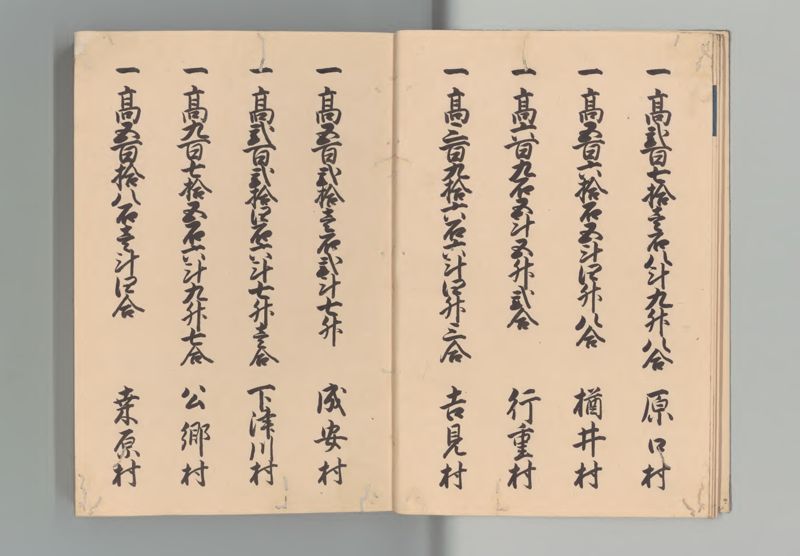 一 高弐百七拾壱石八斗九升八合 原口村
一 高五百六拾石五斗四升八合 楢井村
一 高六百九石五斗五升弐合 行重村
一 高三百九拾六石六斗四升三合 吉見村
一 高五百弐拾壱石弐斗七升 成安村
一 高弐百弐拾四石六斗七升壱合 下津川村
一 高九百七拾五石六斗九升七合 公郷村
一 高五百拾八石壱斗四合 桑原村